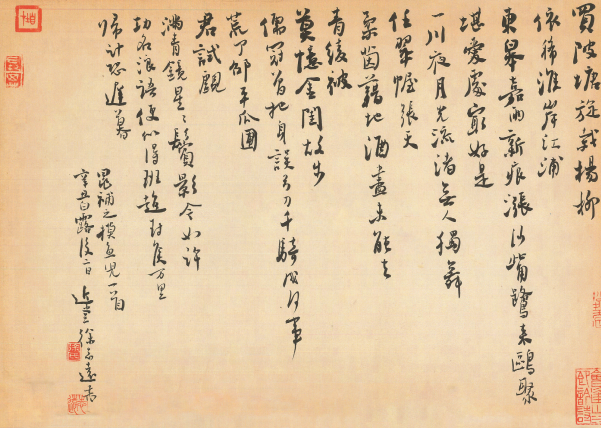 買陂塘旋栽楊柳
依稀淮岸江浦
東皋嘉雨新痕漲沙嘴鷺來鷗聚
堪愛處最好是
一川夜月光流渚無人獨舞
任翠幄張天
柔茵藉地酒盡未能去
青綾被
莫憶金閨故步
儒冠曾把身誤弓刀千騎成何事
荒了邵平瓜圃
君試覷
滿青鏡星星鬢影今如許
功名浪語便似得班超封侯万里
歸計恐遲暮
晁補之摸魚兒一首
辛丑白露後二日